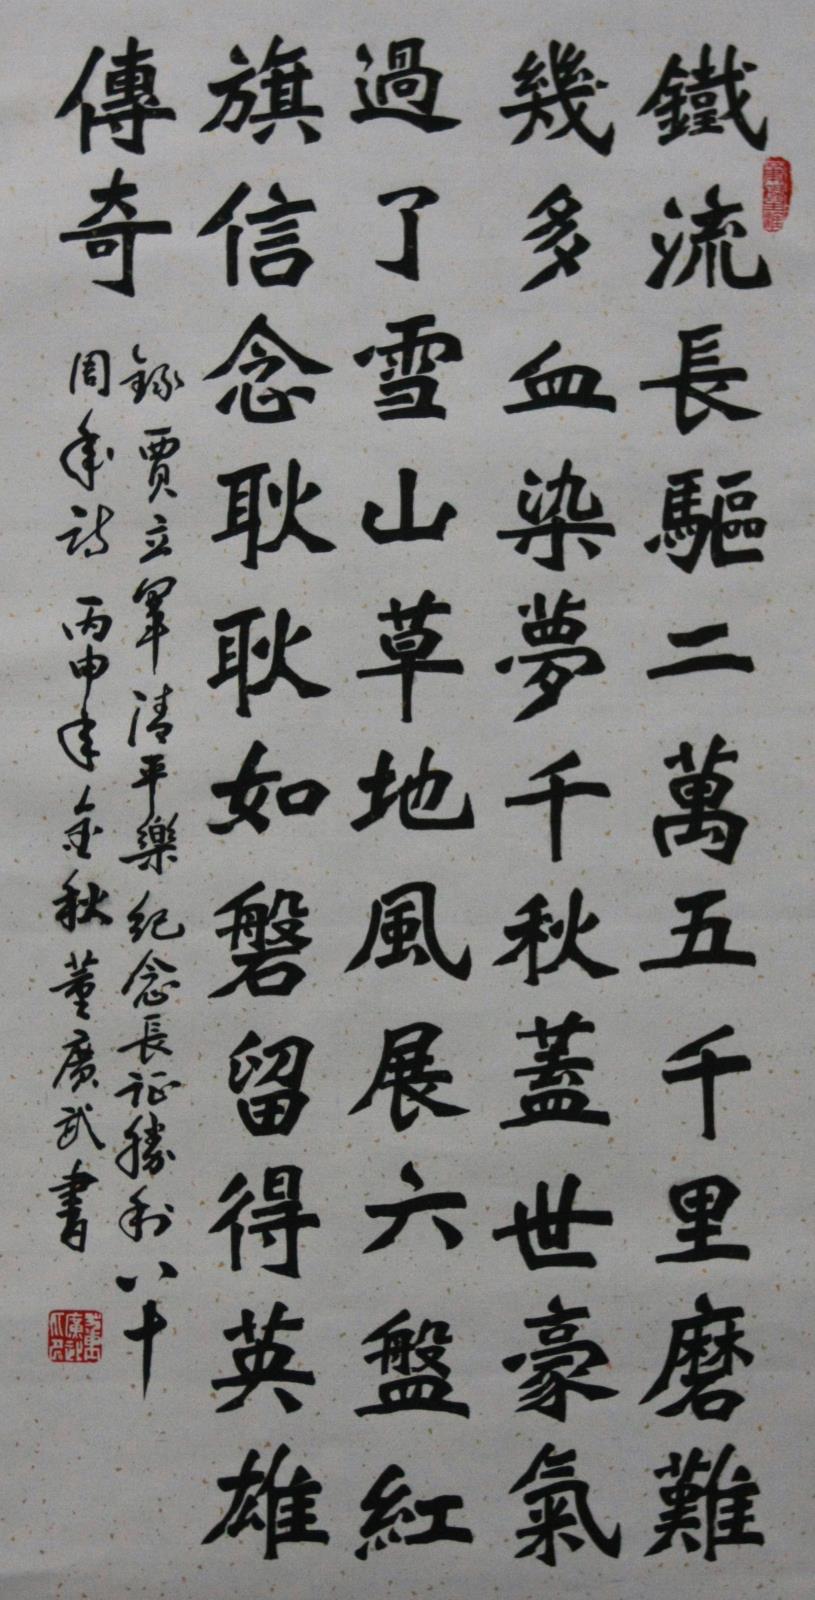 鐵流長驅二萬五千里磨難
幾多血染夢千秋蓋世豪氣
過了雪山草地風展六盤紅
旗信念耿耿如磐留得英雄
傳奇
錄賈立軍清平樂紀念長征勝利八十
周年詩丙申年金秋董廣武書